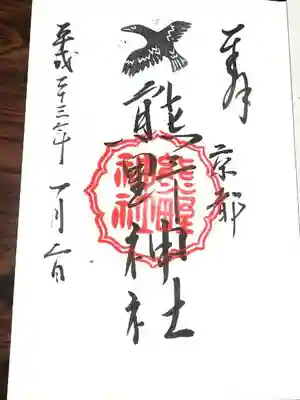 奉拝
京都
熊野神社
熊野神社
平成二十三年一月二日